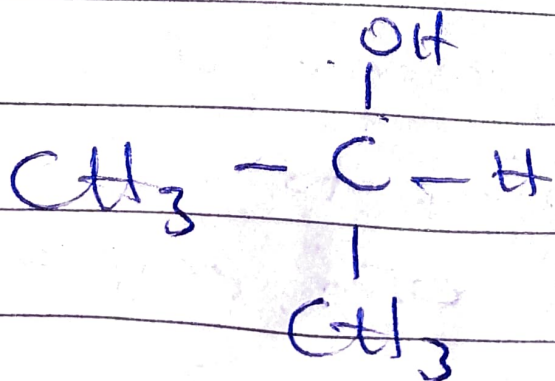 OH
CH3 - C - H
CH3